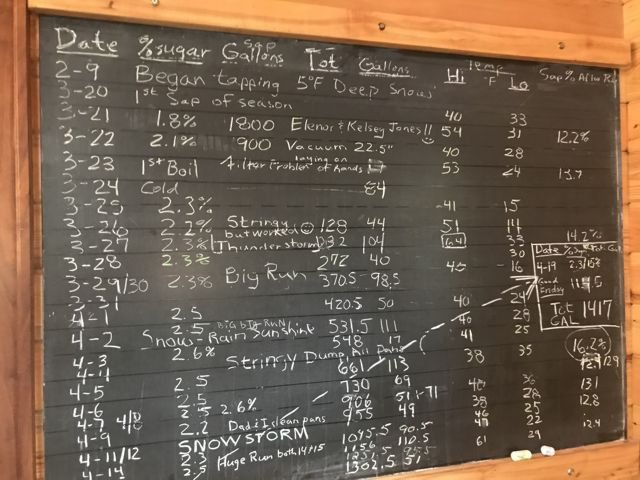 Date % sugar Sap Gallons Tot Gallons Temp °F Hi Lo Sap % After
2-9 Began tapping 5°F Deep Snows
3-20 1st Sap of season 40 33
3-21 1.8% 1800 Elenor & Kelsey Jones!! 54 31 12.2%
3-22 2.1% 900 Vacuum 22.5" 40 28
3-23 1st Boil Filter Problem laying on of hands 53 24 13.7
3-24 Cold 84
3-25 2.3% 41 15
3-26 2.2% Stringy but worked ☺ 128 44 51 11 14.2%
3-27 2.3% Thunderstorm 232 104 16.4 33
3-28 2.3% 272 40 30
3-29/30 2.3% Big Run 370.5 98.5 16
Date % Sap Tot Gal
4-19 2.3/15%
Good Friday 114.5
Tot GAL 1417
420.5 50 40 24
4-1 2.5 BIG BIG RUN 531.5 111 28
4-2 Snow - Rain Sunshine 548 17 41 25 16.2%
4-3 2.6% Stringy Dump All Pans 661 113 38 35
4-4
4-5 2.5 730 69 131
4-6 2.5 51 71 38 28 12.8
4-7 4/8 2.5 2.6% 955 49 46 25
4-9 2.2 Dad & I clean pans 22 12.4
SNOWSTORM 1045.5 90.5 61 29
4-11/12 2.3 110.5
4-14 2.5 Huge Run both 14+15 1302.5 51